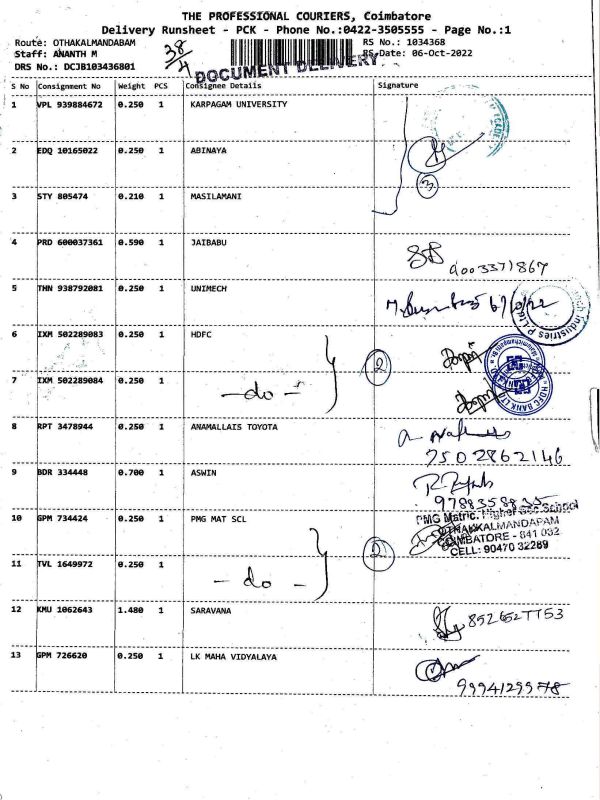 THE PROFESSIONAL COURIERS, Coimbatore
Delivery Runsheet - PCK - Phone No.:0422-3505555 - Page No.:1
Route: OTHAKALMANDABAM
RS No.: 1034368
Staff: ANANTH M
38/4
RS Date: 06-Oct-2022
DRS No.: DCJB103436801
DOCUMENT DELIVERY
S No Consignment No Weight PCS Consignee Details Signature
1 VPL 939884672 0.250 1 KARPAGAM UNIVERSITY
2 EDQ 10165022 0.250 1 ABINAYA
3
3 STY 805474 0.210 1 MASILAMANI
4 PRD 600037361 0.590 1 JAIBABU
9003371867
5 THN 938792081 0.250 1 UNIMECH
6/10/22
Industries P Ltd
6 IXM 502289083 0.250 1 HDFC
2
7 IXM 502289084 0.250 1
- do -
HDFC BANK LTD
8 RPT 3478944 0.250 1 ANAMALLAIS TOYOTA
7502862146
9 BDR 334448 0.700 1 ASWIN
9788358835
10 GPM 734424 0.250 1 PMG MAT SCL
PMG Matric. Higher Sec. School
OTHAKKALMANDAPAM
COIMBATORE - 641 032
CELL: 90470 32289
2
11 TVL 1649972 0.250 1
- do -
12 KMU 1062643 1.480 1 SARAVANA
8526527753
13 GPM 726620 0.250 1 LK MAHA VIDYALAYA
9994129978